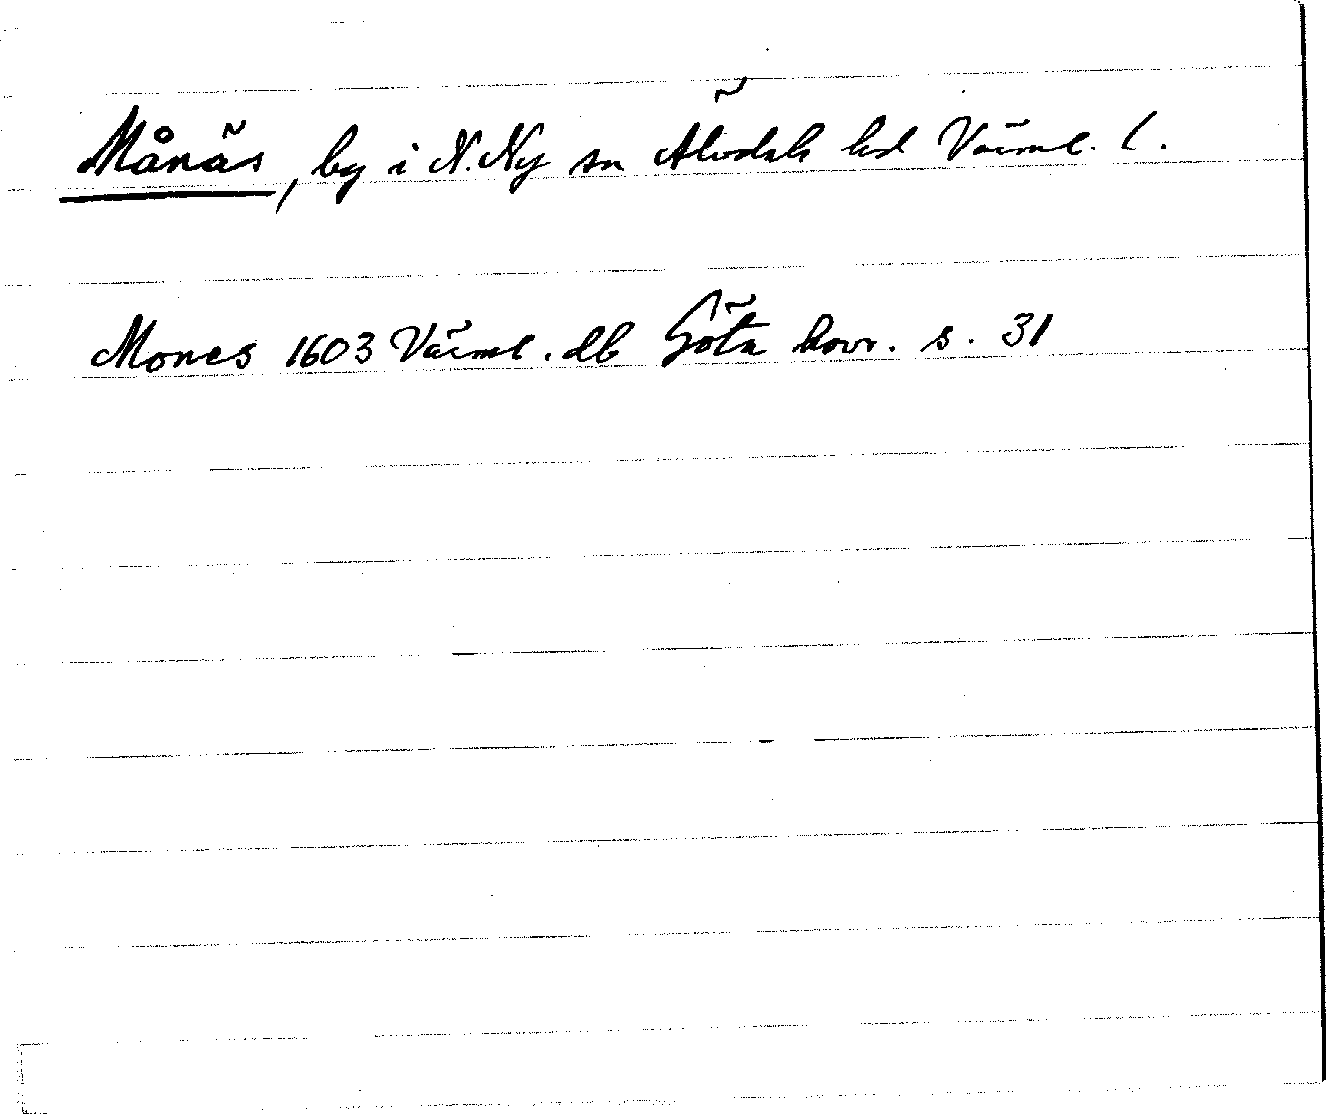 Månäs, by i N. Ny sn Älvdals hd Värml. l.
Mones 1603 Värml. db Göta hovr. s. 31